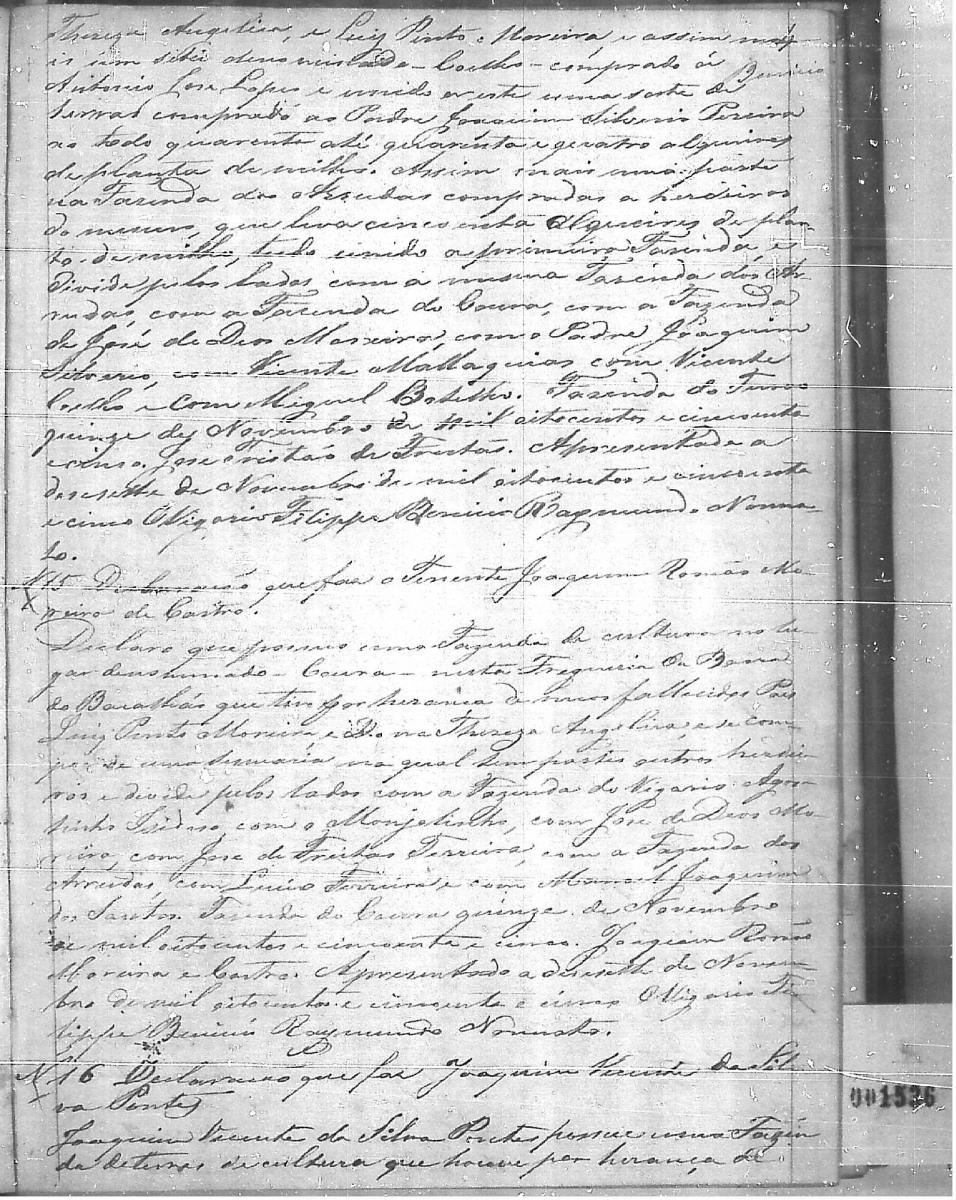 Thereza Angelica, e Luiz Pinto Moreira e assim ma-
is um sitio denominado - Coelho - comprado á
Antonio Jose Lopes e unido a este uma sorte de
terras comprado ao Padre Joaquim Silverio Pereira
no todo quarenta até quarenta e quatro alqueires
de planta de milho. Assim mais uma parte
na Fazenda dos Arrudas compradas a herdeiros
do mesmo, que leva cincoenta alqueires de plan-
ta de milho, tudo unido a primeira Fazenda, e
divide pelos lados com a mesma Fazenda dos Ar-
rudas, com a Fazenda do Coura, com a Fazenda
de José de Deos Moreira, com o Padre Joaquim
Silverio, com Vicente Mallaquias, com Vicente
Coelho e com Miguel Botelho. Fazenda do
quinze de Novembro de mil oitocentos e cincoenta
e cinco. Jose Tristão de Freitas. Apresentada a
desesette de Novembro de mil oitocentos e cincoenta
e cinco O Vigario Filippe Benicio Raymundo Nonna-
to.
N 15 Declaração que faz o Tenente Joaquim Romão Mo-
reira de Castro.
Declaro que possuo uma Fazenda de cultura no lu-
gar denominado - Coura - nesta Freguesia da Barra
do Bacalháo que tive por herança de meos fallecidos Pais
Luiz Pinto Moreira e Dona Thereza Angelica, e se com-
põe de uma sesmaria na qual tem partes outros herdei-
ros e divide pelos lados com a Fazenda do Vigario Agos-
tinho Isidoro, com o Monjolinho, com Jose de Deos Mo-
reira, com Jose de Freitas Ferreira, com a Fazenda dos
Arrudas, com Lucio Ferreira e com Manoel Joaquim
dos Santos. Fazenda do Coura quinze de Novembro
de mil oitocentos e cincoenta e cinco. Joaquim Romão
Moreira e Castro. Apresentado a desesette de Novem-
bro de mil oitocentos e cincoenta e cinco O Vigario Fi-
lippe Benicio Raymundo Nonnato.
N 16 Declaração que faz Joaquim Vicente da Sil-
va Pontes
Joaquim Vicente da Silva Pontes possue uma Fazen
da de terras de cultura que houve por herança de
001536